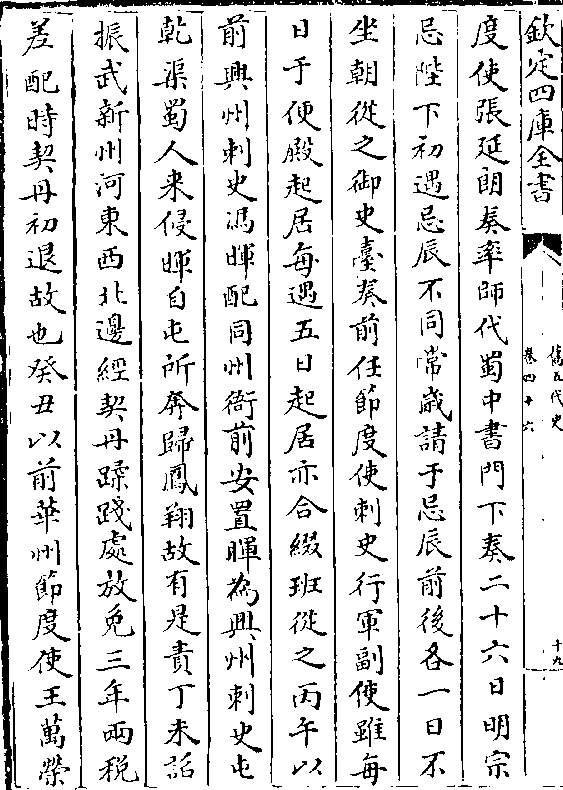 欽定四庫全書
舊五代史
卷四十六
十九
度使張延朗奏率師代蜀中書門下奏二十六日明宗
忌陛下初遇忌辰不同常歲請于忌辰前後各一日不
坐朝從之御史臺奏前任節度使刺史行軍副使雖每
日于便殿起居每遇五日起居亦合綴班從之丙午以
前興州刺史馮暉配同州衙前安置暉為興州刺史屯
乾渠蜀人來侵暉自屯所奔歸鳳翔故有是責丁未詔
振武新州河東西北邊經契丹蹂踐處放免三年兩稅
差配時契丹初退故也癸丑以前華州節度使王萬榮